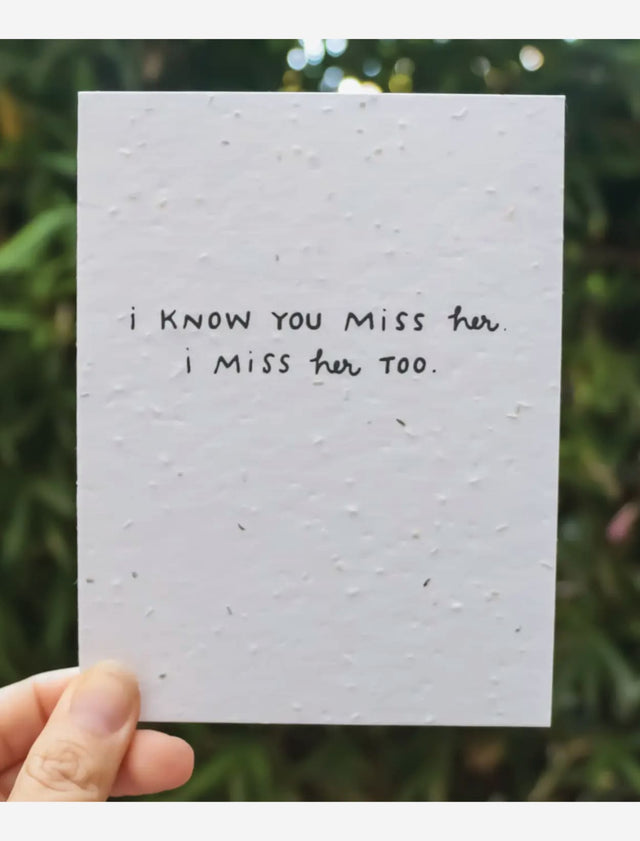 i KNOW YOU MiSS her.
i MiSS her TOO.